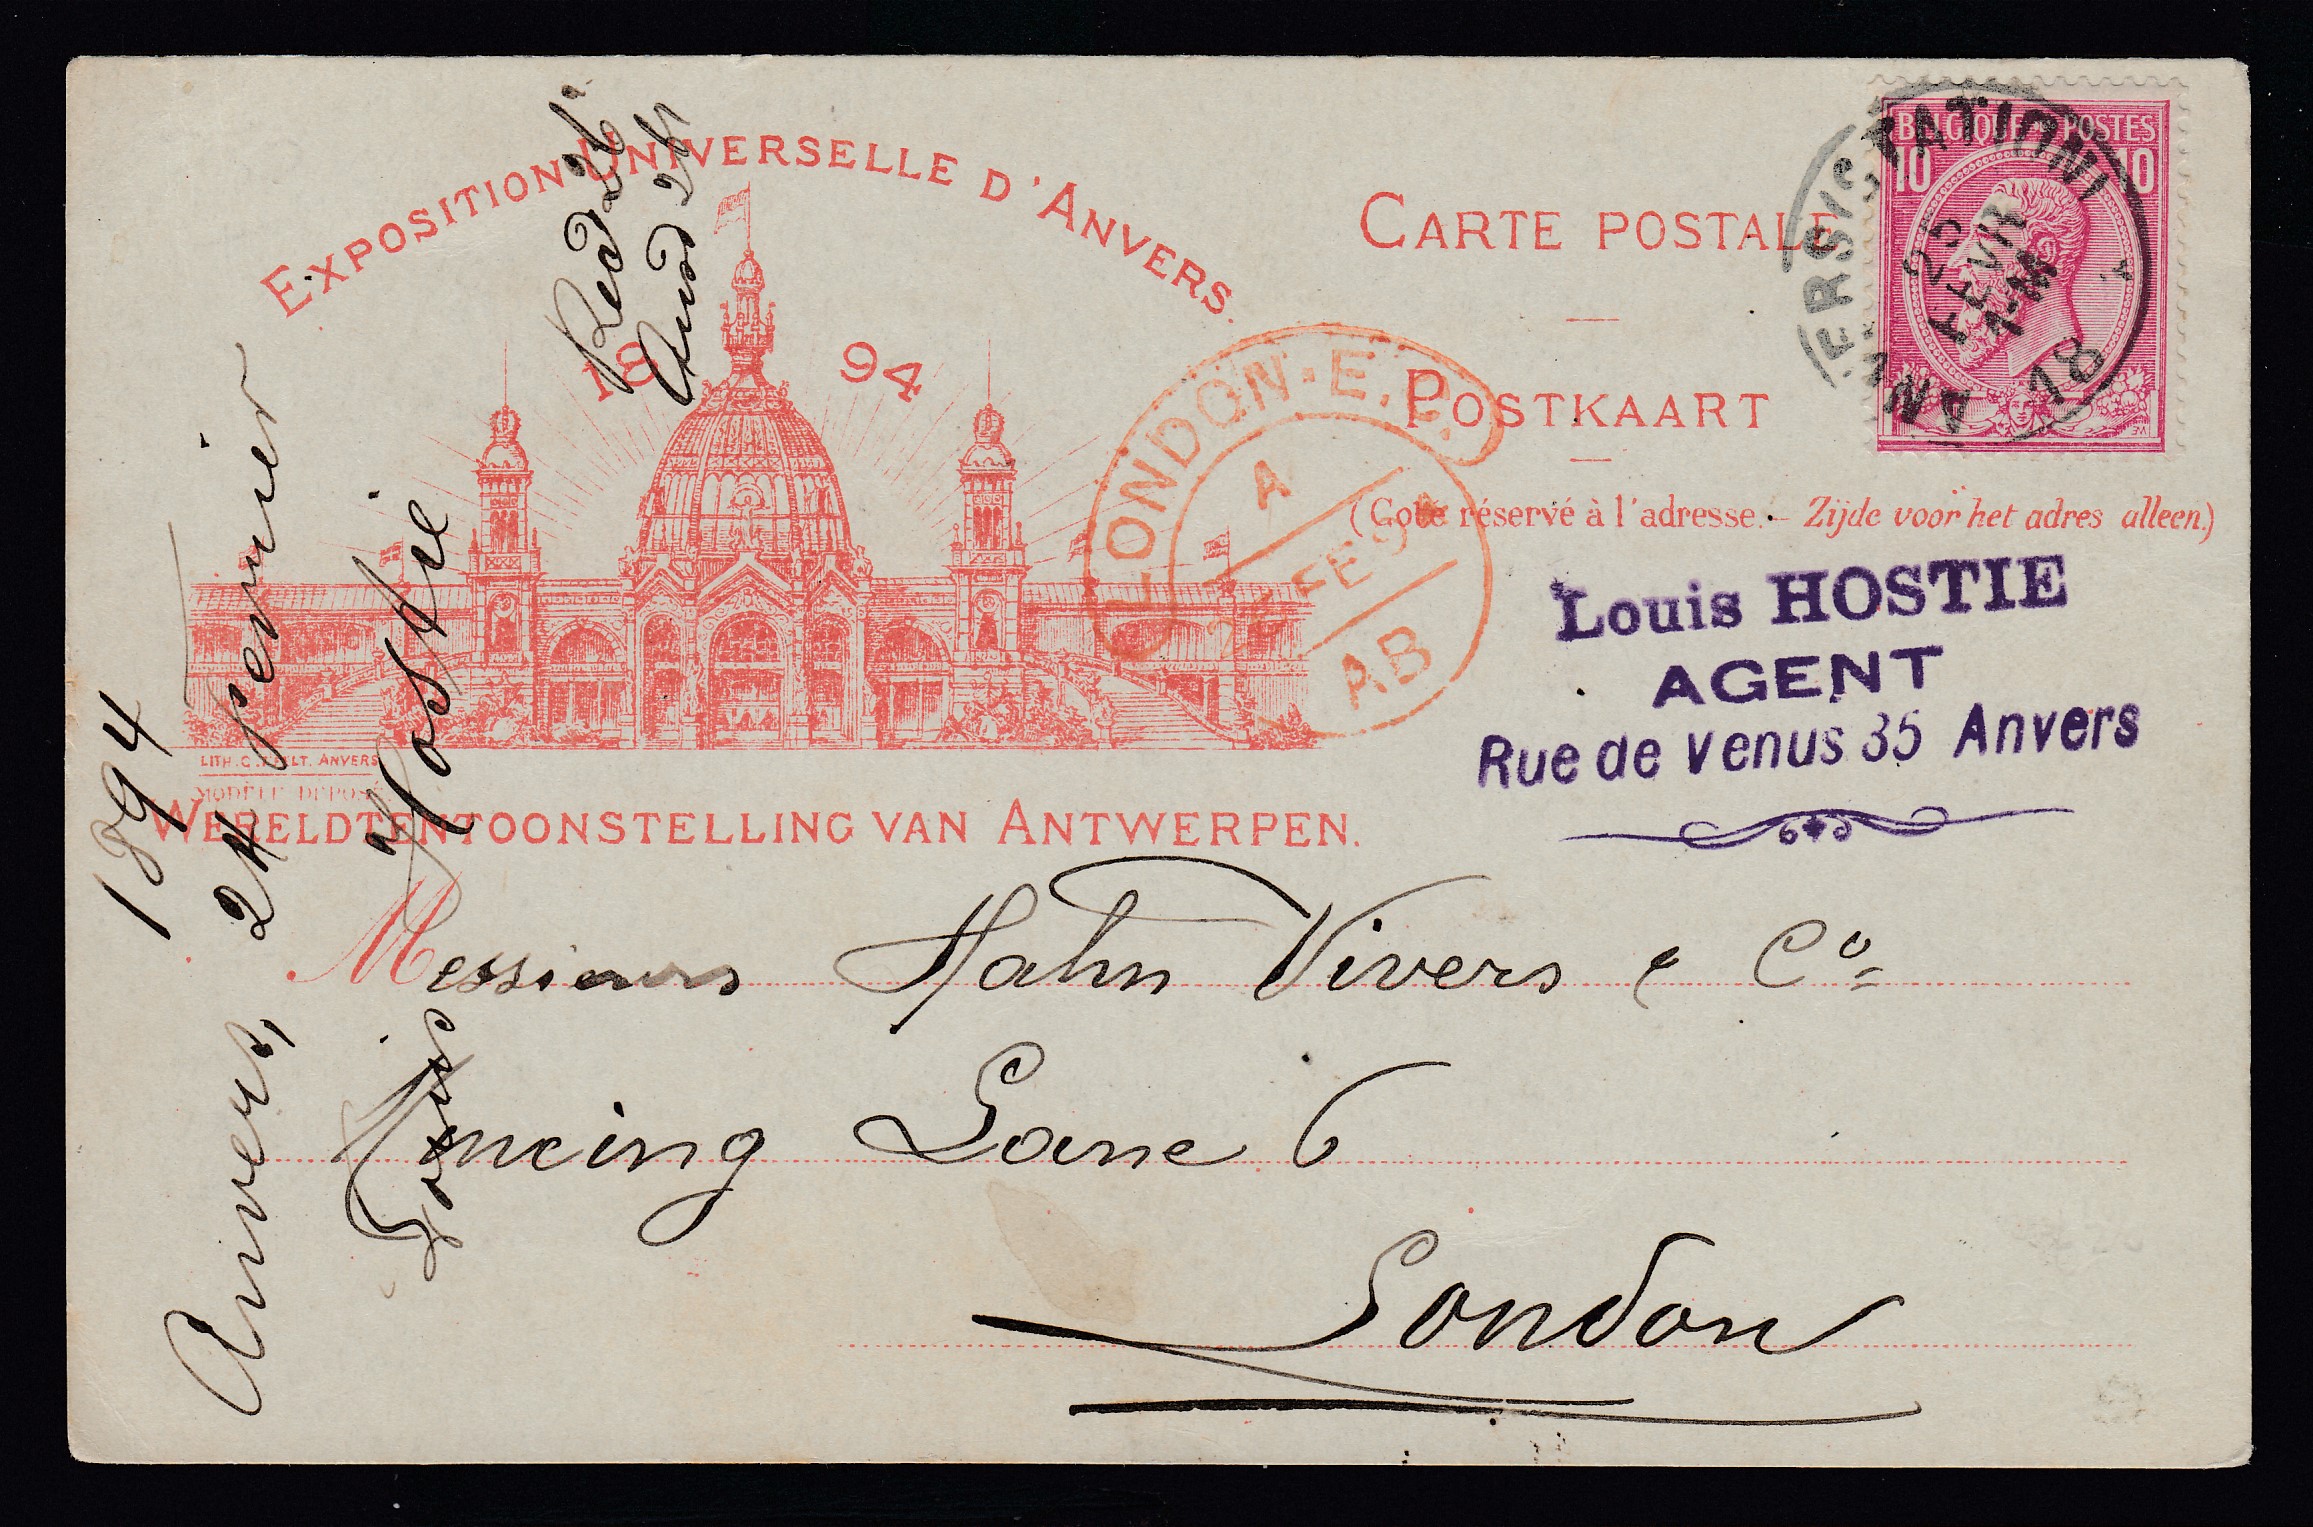 EXPOSITION UNIVERSELLE D'ANVERS.
1894
LITH. C. ANVERS
MODÈLE DÉPOSÉ
WERELDTENTOONSTELLING VAN ANTWERPEN.
CARTE POSTALE
POSTKAART
(Coté réservé à l'adresse. – Zijde voor het adres alleen.)
BELGIQUE POSTES
10 10
ANVERS (STATION)
25
FEVR
7-M
18
LONDON·E.C.
A
26 FE 94
AB
Louis HOSTIE
AGENT
Rue de Venus 35 Anvers
Recd 26
Ansd 26
1894
Anvers, 24
Louis Hostie
Messieurs Hahn Vivers & Co
Mincing Lane 6
London